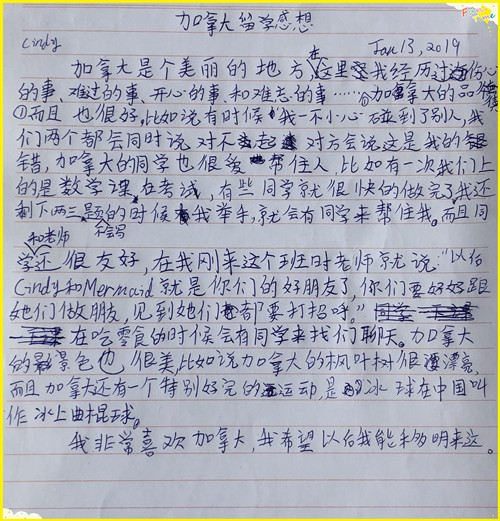 加拿大留学感想
Cindy
Jan 13, 2019
加拿大是个美丽的地方,在这里我经历过伤心
的事、难过的事、开心的事、和难忘的事……加拿大的品德
①而且也很好,比如说有时候我一不小心碰到了别人,我
们两个都会同时说对不起对方会说这是我的错
错,加拿大的同学也很爱帮住人,比如有一次我们上
的是数学课,在考试,有些同学就很快的做完了,我还
剩下两三题的时候我牵手,就会有同学来帮住我。而且同
和老师 不会写
学还很友好,在我刚来这个班时老师就说:“以后
Cindy和Mermaid就是你们的好朋友了,你们要好好跟
她们做朋友,见到她们都要打招呼。”
在吃零食的时候会有同学来找们聊天。加拿大
的景色也很美,比如说加拿大的枫叶树很漂亮,
而且加拿大还有一个特别好完的运动,是冰球在中国叫
作冰上曲棍球。
我非常喜欢加拿大,我希望以后我能多来这。